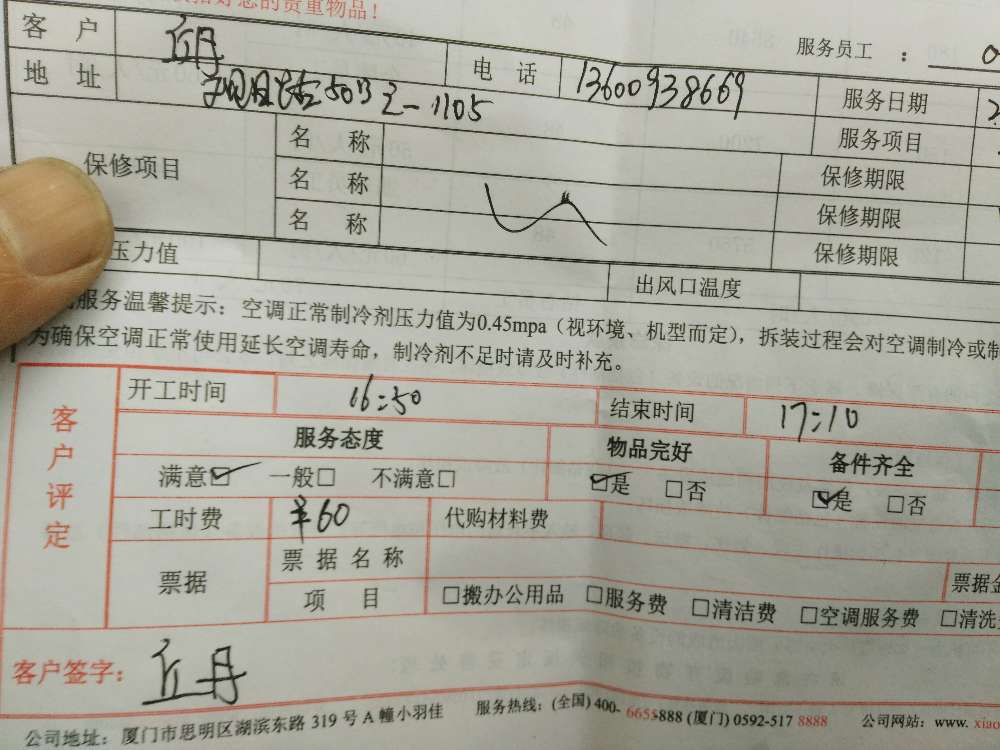 您的贵重物品！
客 户 丘丹 电 话 13600938669 服务员工 ：
地 址 50号之一1105 服务日期
保修项目 名 称 服务项目
名 称 保修期限
名 称 保修期限
保修期限
压力值 出风口温度
服务温馨提示：空调正常制冷剂压力值为0.45mpa（视环境、机型而定），拆装过程会对空调制冷或制
为确保空调正常使用延长空调寿命，制冷剂不足时请及时补充。
客户评定 开工时间 16:50 结束时间 17:10
服务态度 物品完好 备件齐全
满意☑ 一般□ 不满意□ ☑是 □否 ☑是 □否
工时费 ￥60 代购材料费
票据 票 据 名 称 票据金
项 目 □搬办公用品 □服务费 □清洁费 □空调服务费 □清洗
客户签字： 丘丹
公司地址：厦门市思明区湖滨东路 319 号 A 幢小羽佳 服务热线：(全国) 400- 6655888 (厦门) 0592-517 8888 公司网站：www. xiao